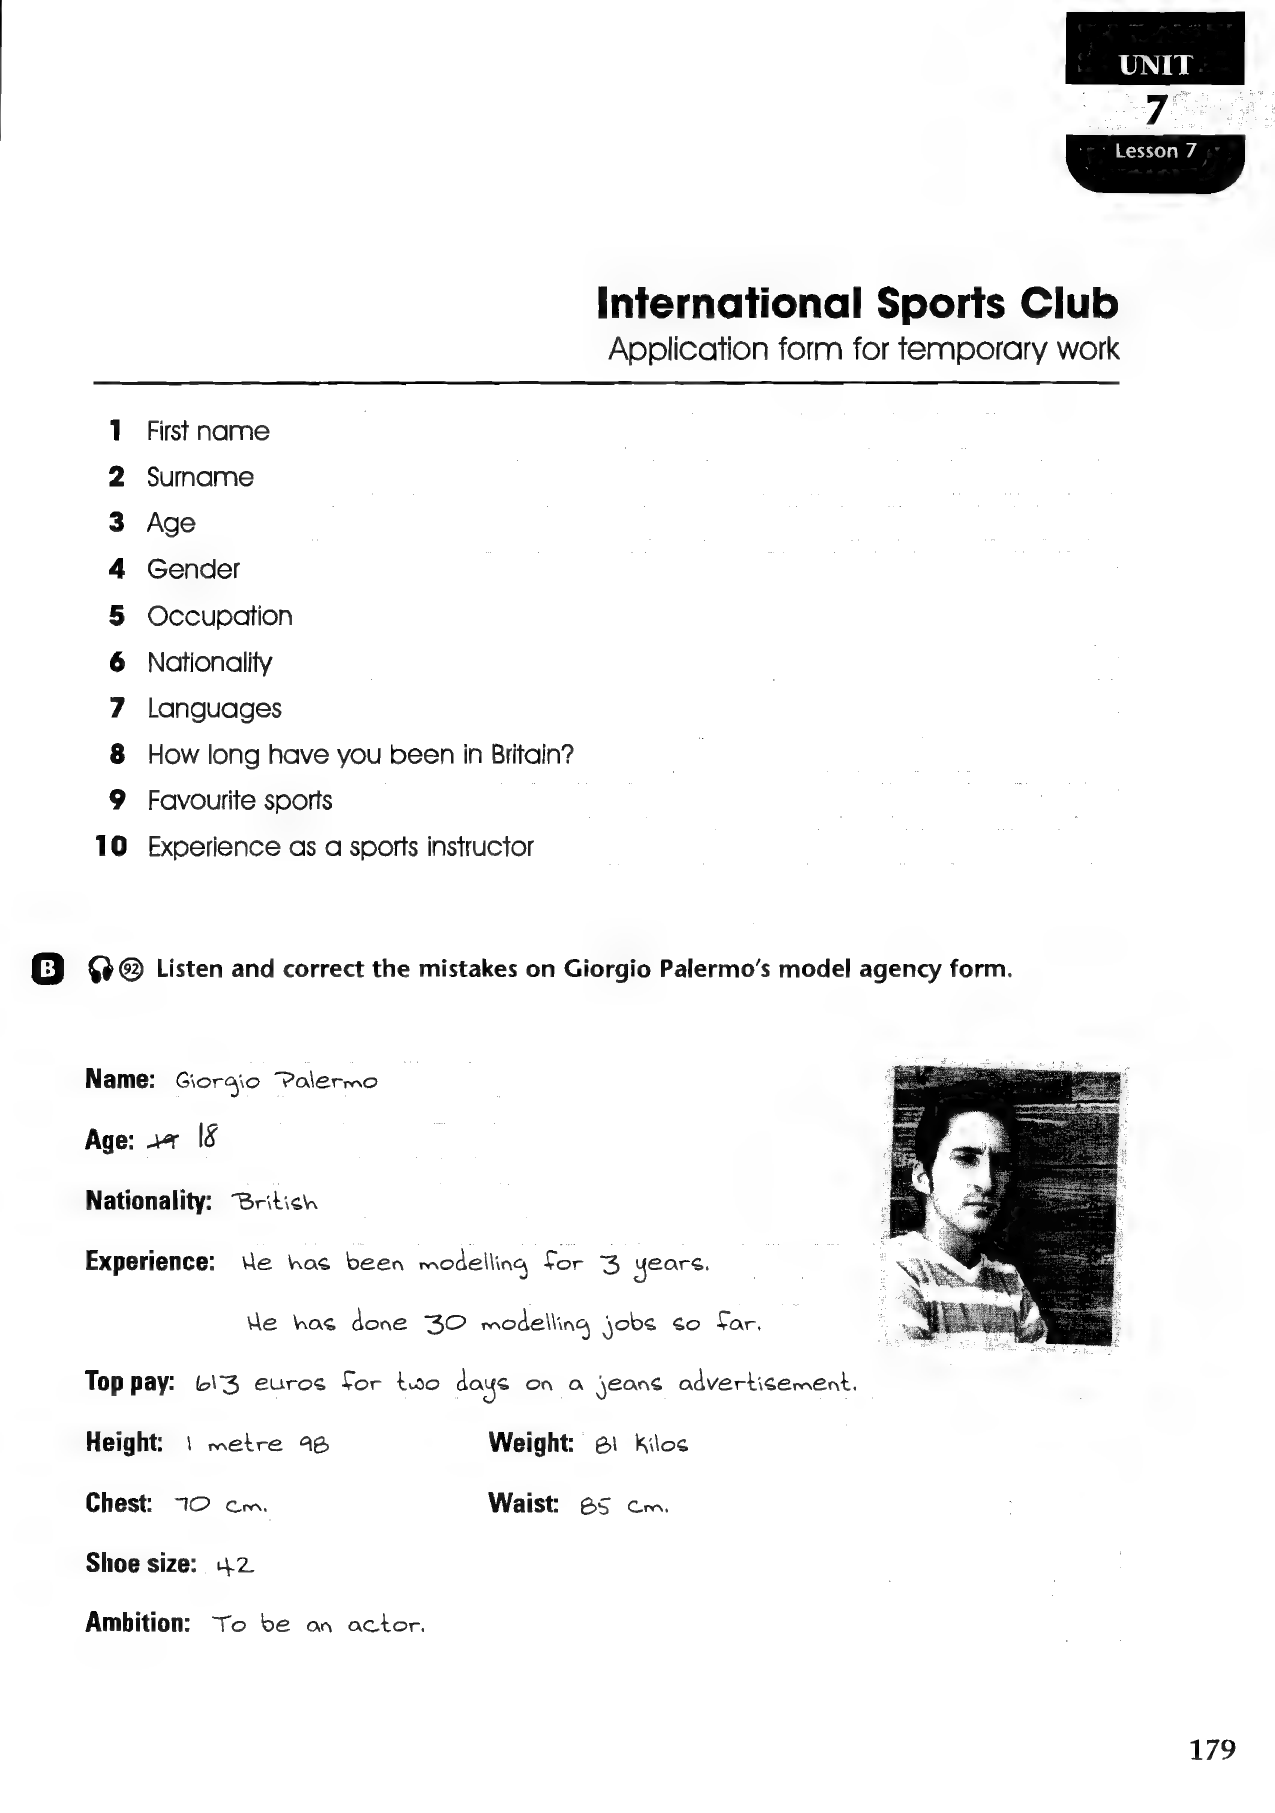 UNIT
7
Lesson 7
International Sports Club
Application form for temporary work
1 First name
2 Surname
3 Age
4 Gender
5 Occupation
6 Nationality
7 Languages
8 How long have you been in Britain?
9 Favourite sports
10 Experience as a sports instructor
B 92 Listen and correct the mistakes on Giorgio Palermo's model agency form.
Name: Giorgio Palermo
Age: 18
Nationality: British
Experience: He has been modelling for 3 years.
He has done 30 modelling jobs so far.
Top pay: 613 euros for two days on a jeans advertisement.
Height: 1 metre 98 Weight: 81 kilos
Chest: 70 cm. Waist: 85 cm.
Shoe size: 42
Ambition: To be an actor.
179